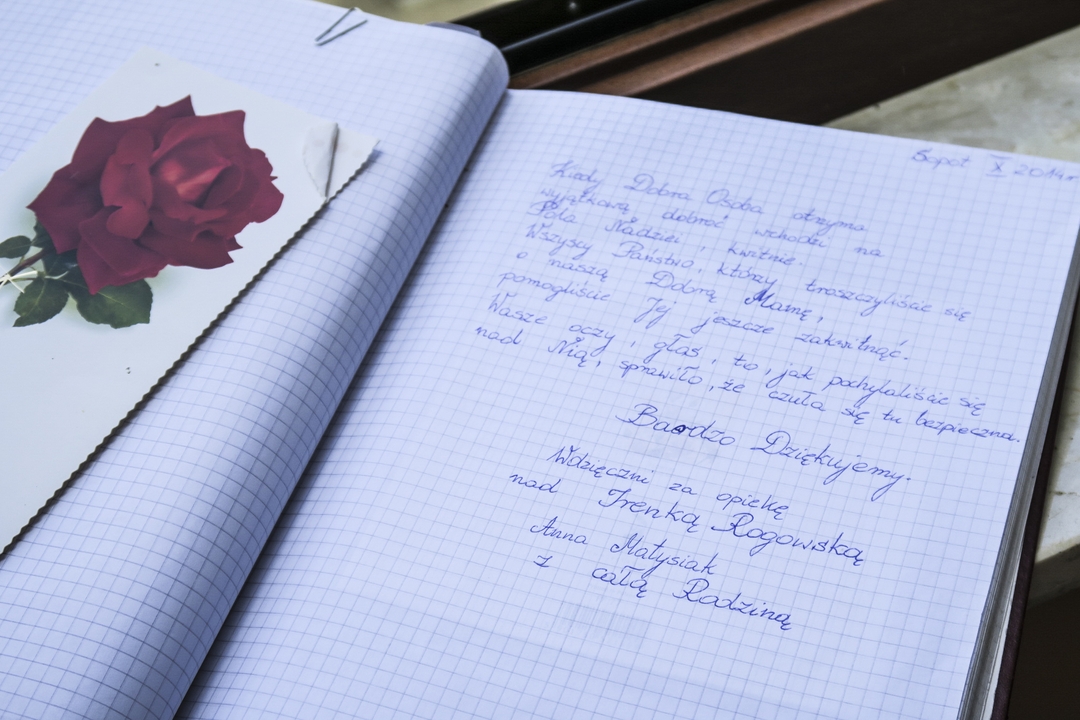 Sopot X 2014r
Kiedy Dobra Osoba otrzyma
wyjątkową dobroć wchodzi na
Pola Nadziei, kwitnie.
Wszyscy Państwo, którzy troszczyliście się
o naszą Dobrą Mamę,
pomogliście Jej jeszcze zakwitnąć.
Wasze oczy, głos, to, jak pochylaliście się
nad Nią, sprawiło, że czuła się tu bezpieczna.
Bardzo Dziękujemy.
Wdzięczni za opiekę
nad Irenką Rogowską
Anna Matysiak
z całą Rodziną